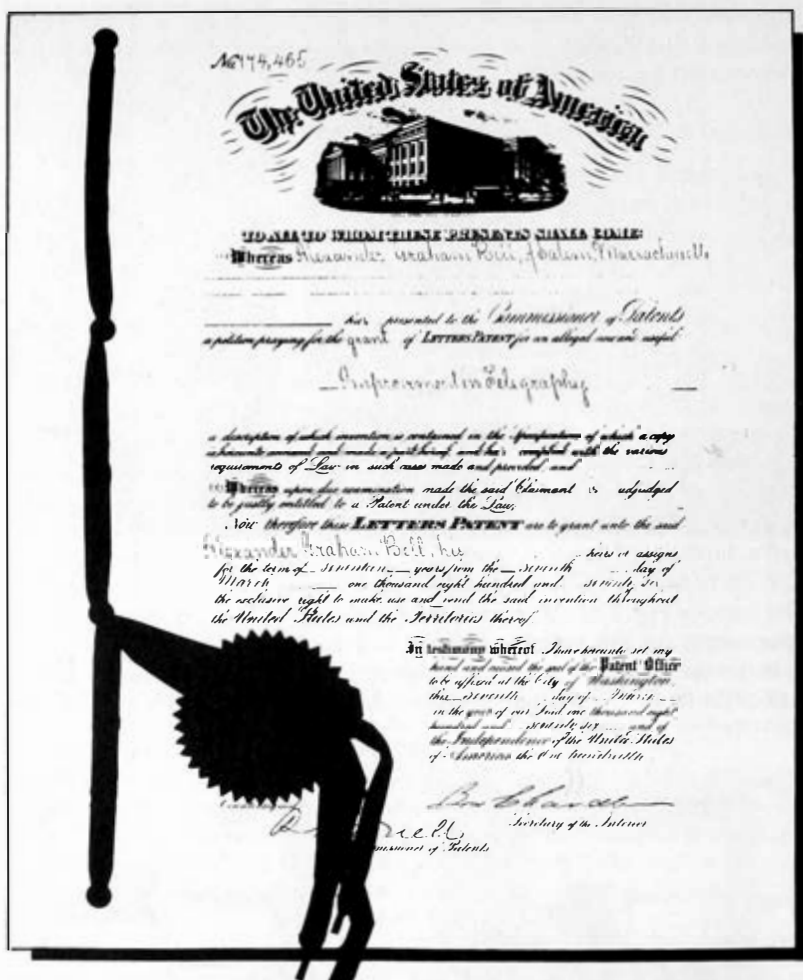 No 174,465
The United States of America
TO ALL TO WHOM THESE PRESENTS SHALL COME:
Whereas Alexander Graham Bell, of Salem, Massachusetts
has presented to the Commissioner of Patents
a petition praying for the grant of LETTERS PATENT for an alleged new and useful
Improvement in Telegraphy
a description of which invention is contained in the Specification of which a copy
is hereunto annexed and made a part hereof, and has complied with the various
requirements of Law in such cases made and provided, and
Whereas upon due examination made the said Claimant is adjudged
to be justly entitled to a Patent under the Law.
Now therefore these LETTERS PATENT are to grant unto the said
Alexander Graham Bell, his heirs or assigns
for the term of seventeen years from the seventh day of
March one thousand eight hundred and seventy six
the exclusive right to make use and vend the said invention throughout
the United States and the Territories thereof
In testimony whereof I have hereunto set my
hand and caused the seal of the Patent Office
to be affixed at the City of Washington
this seventh day of March
in the year of our Lord one thousand eight
hundred and seventy six and of
the Independence of the United States
of America the one hundredth.
Secretary of the Interior
of Patents